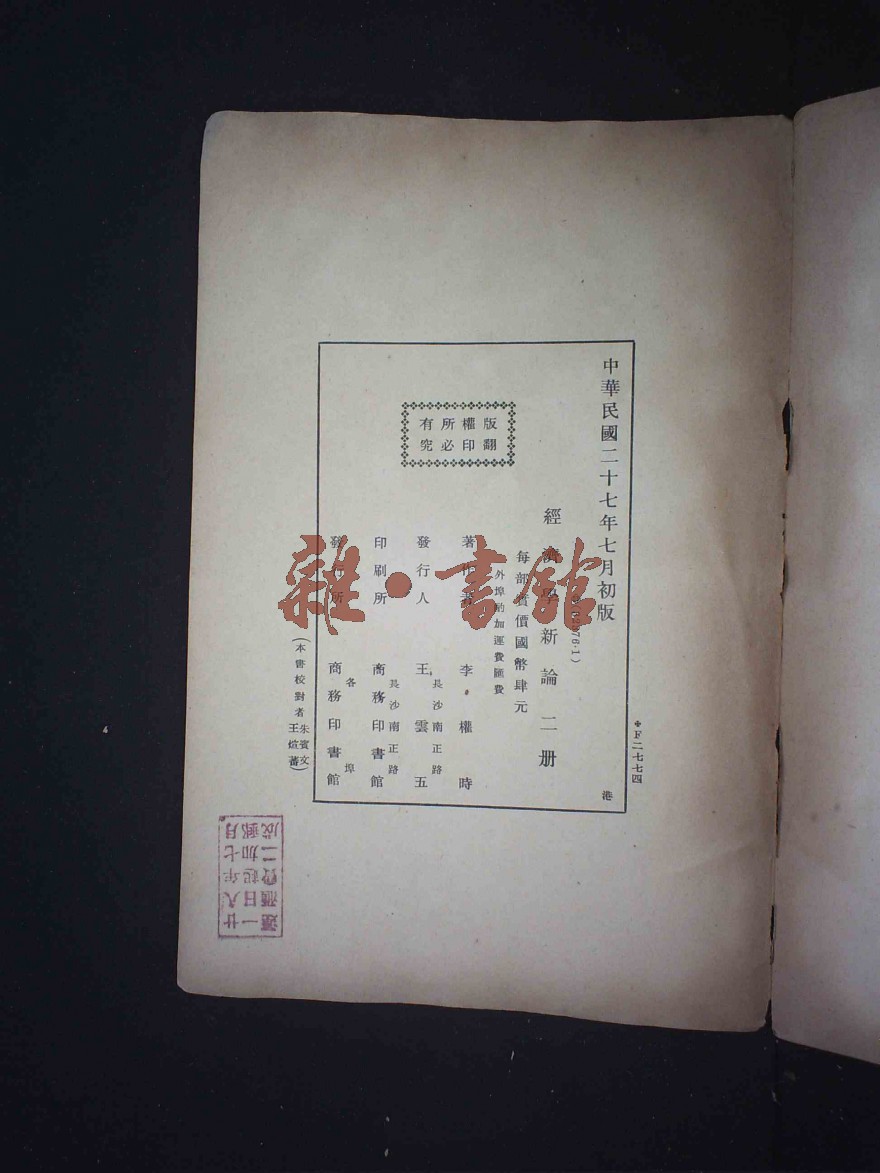 中華民國二十七年七月初版
版權所有
翻印必究
經濟學新論二册
每部實價國幣肆元
外埠酌加運費匯費
著作者 李權時
發行人 王雲五
長沙南正路
印刷所 商務印書館
長沙南正路
發行所 商務印書館
各埠
(本書校對者朱賓文
王煊蕃)
＊F二七七四
港
廿八年七月
一日起加郵
運匯費二成
雜·書館